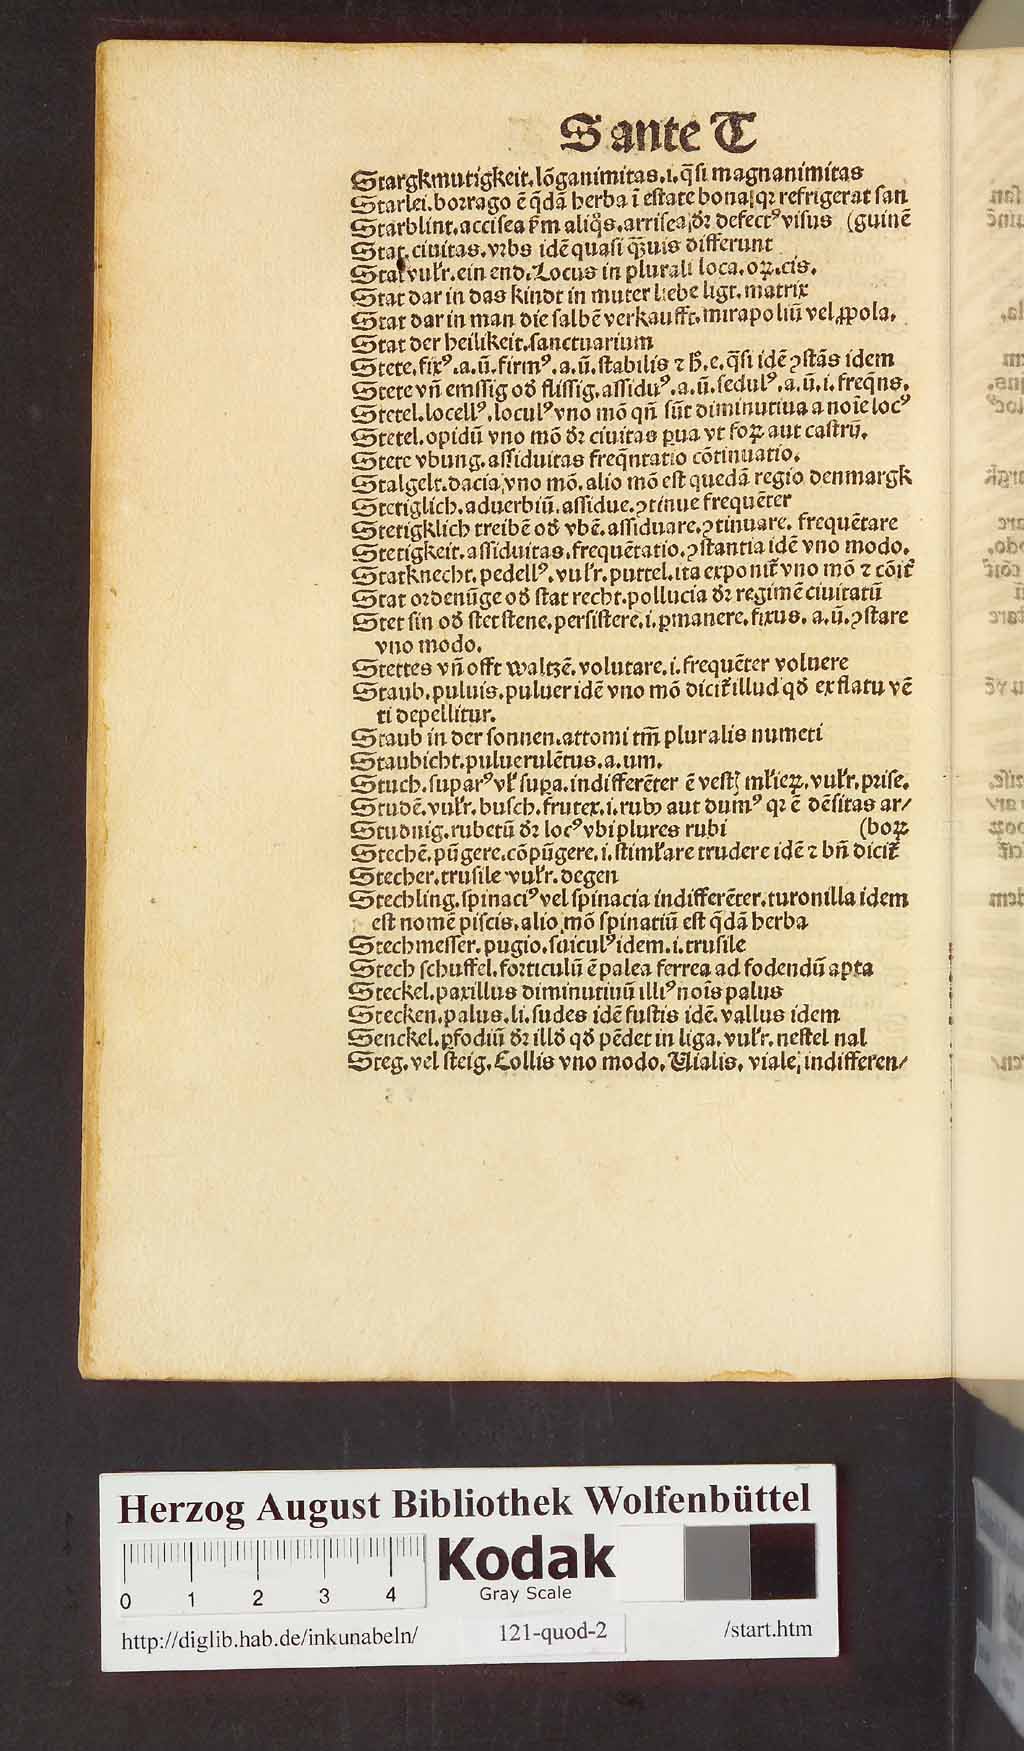 S ante T
Stargkmutigkeit. lōganimitas. i. q̄si magnanimitas
Starlei. borrago ē q̄dā herba ī estate bona; qꝛ refrigerat san
Starblint. accisea aliq̊s. arrisea; dꝛ defectꝰ visus (guinē
Stat. ciuitas. vrbs idē quasi differunt
Stat vulr̄. ein end. Locus in plurali loca. oꝝ. cis.
Stat dar in das kindt in muter liebe ligt. matrix
Stat dar in man die salbē verkaufft. mirapoliū vel ꝓpola.
Stat der heilikeit. sanctuarium
Stete. fixꝰ. a. ū. firmꝰ. a. ū. stabilis ⁊ h̄. e. q̄si idē ꝯstās idem
Stete vn̄ emssig od̕ flissig. assiduꝰ. a. ū. sedulꝰ. a. ū. i. freq̄ns.
Stetel. locellꝰ. loculꝰ vno mō qn̄ sūt diminutiua a noīe locꝰ
Stetel. opidū vno mō dꝛ ciuitas ꝑua vt foꝝ aut castrū.
Stete vbung. assiduitas freq̄ntatio cōtinuatio.
Stalgelt. dacia; vno mō. alio mō est quedā regio denmargk
Stetiglich. aduerbiū. assidue. ꝯtinue frequēter
Stetigklich treibē od̕ vbē. assiduare. ꝯtinuare. frequētare
Stetigkeit. assiduitas. frequētatio. ꝯstantia idē vno modo.
Statknecht. pedellꝰ. vulr̄. puttel. ita exponit̄ vno mō ⁊ cōit̄
Stat ordenūge od̕ stat recht. pollucia dꝛ regimē ciuitatū
Stet sin od̕ stet stene. persistere. i. ꝑmanere. fixus. a. ū. ꝯstare
vno modo.
Stettes vn̄ offt waltzē. volutare. i. frequēter voluere
Staub. puluis. puluer idē vno mō dicit̄ illud qd̕ ex flatu vē
ti depellitur.
Staub in der sonnen. attomi tm̄ pluralis numeri
Staubicht. puluerulētus. a. um.
Stuch. suparꝰ vl̄ supa. indifferēter ē vestꝫ ml̄ieꝝ. vulr̄. prise.
Studē. vulr̄. busch. frutex. i. rubꝰ aut dumꝰ qꝛ ē dēsitas ar/
Studnig. rubetū dꝛ locꝰ vbi plures rubi (boꝝ
Stechē. pūgere. cōpūgere. i. stiml̄are trudere idē ⁊ bn̄ dicit̄
Stecher. trusile vulr̄. degen
Stechling. spinaciꝰ vel spinacia indifferēter. turonilla idem
est nomē piscis. alio mō spinatiū est q̄dā herba
Stechmesser. pugio. suiculꝰ idem. i. trusile
Stech schuffel. forticulū ē palea ferrea ad fodendū apta
Steckel. paxillus diminutiuū illiꝰ noīs palus
Stecken. palus. li. sudes idē fustis idē. vallus idem
Senckel. ꝑfodiū dꝛ illd̕ qd̕ pēdet in liga. vulr̄. nestel nal
Steg. vel steig. Collis vno modo. Uialis, viale; indifferen/
Herzog August Bibliothek Wolfenbüttel
0 1 2 3 4
Kodak
Gray Scale
http://diglib.hab.de/inkunabeln/ 121-quod-2 /start.htm